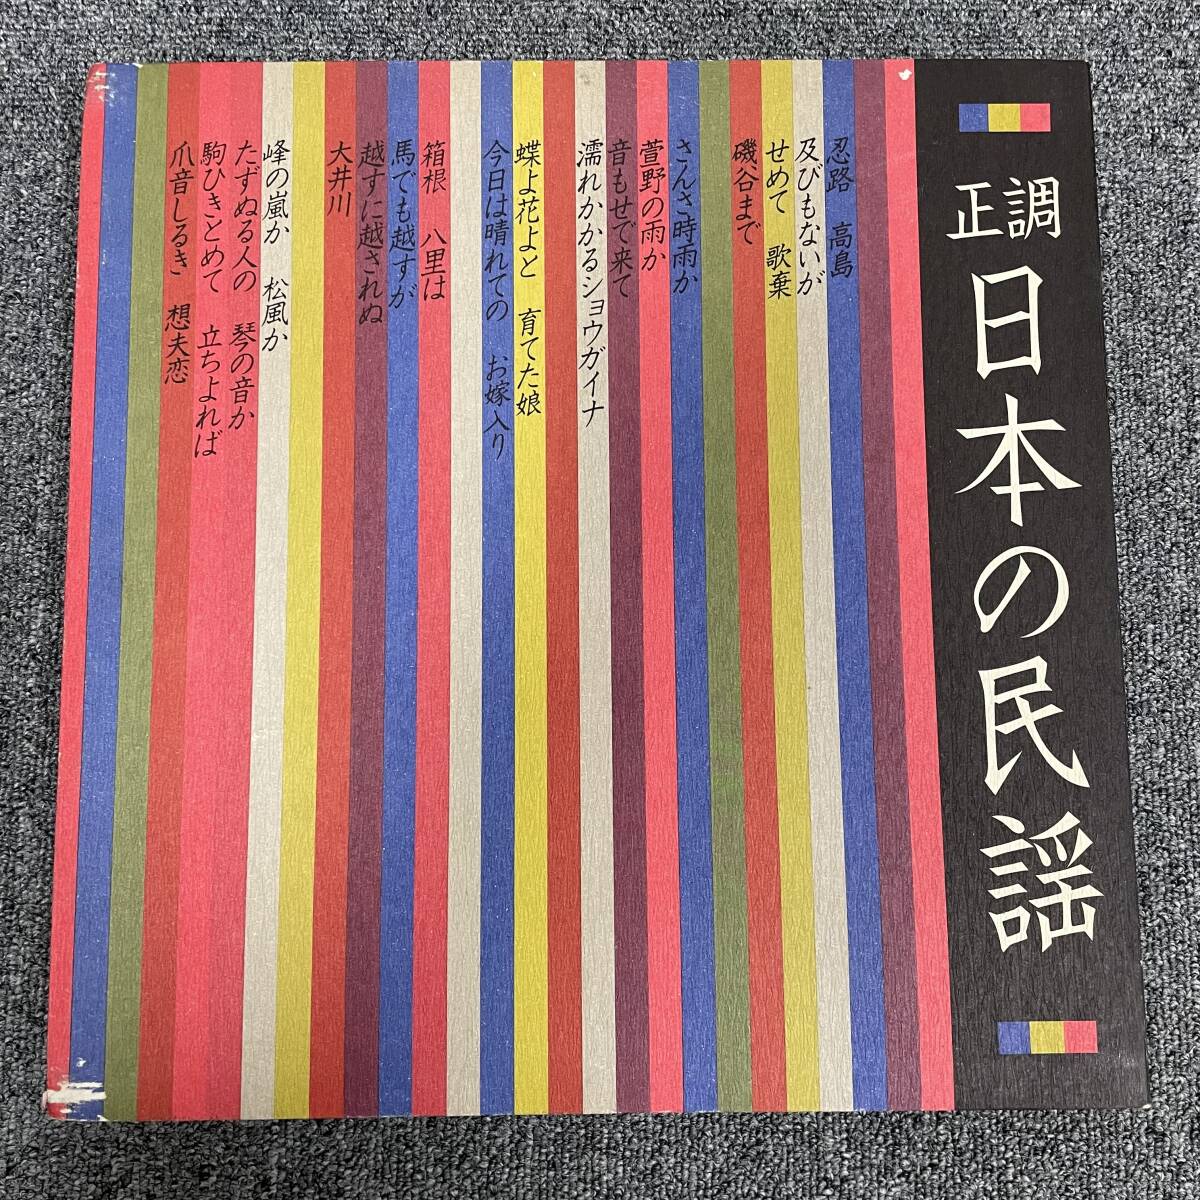 正調
日本の民謡
忍路　高島
及びもないが
せめて　歌棄
磯谷まで
さんさ時雨か
萱野の雨か
音もせで来て
濡れかかるショウガイナ
蝶よ花よと　育てた娘
今日は晴れての　お嫁入り
箱根　八里は
馬でも越すが
越すに越されぬ
大井川
峰の嵐か　松風か
たずぬる人の　琴の音か
駒ひきとめて　立ちよれば
爪音しるき　想夫恋